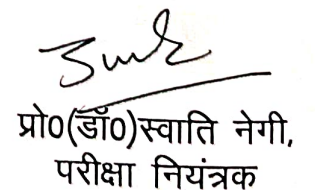 प्रो0(डॉ0)स्वाति नेगी,
परीक्षा नियंत्रक